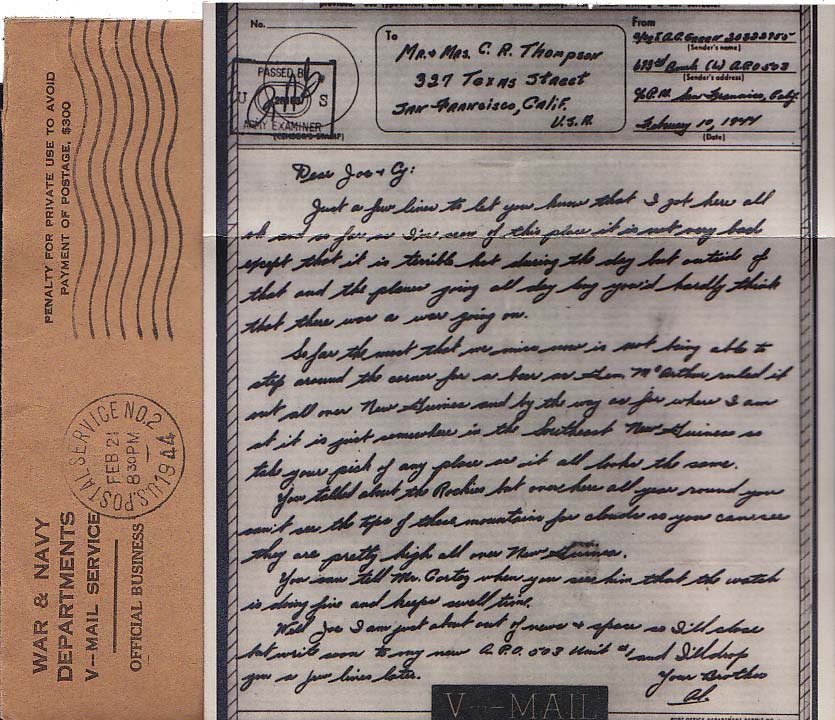 PENALTY FOR PRIVATE USE TO AVOID
PAYMENT OF POSTAGE, $300
U.S. POSTAL SERVICE NO. 2
FEB 21
830PM
1944
WAR & NAVY
DEPARTMENTS
V--MAIL SERVICE
OFFICIAL BUSINESS
No.
PASSED BY
U S
ARMY EXAMINER
(CENSOR'S STAMP)
To
Mr. & Mrs. C. R. Thompson
327 Texas Street
San Francisco, Calif.
U.S.A.
From
(Sender's name)
(W) A.P.O 503
(Sender's address)
c/o P.M. San Francisco, Calif.
February 10, 1944
(Date)
Dear Joe & Cy:
Just a few lines to let you know that I got here all
ok and so far as I've seen of this place it is not very bad
except that it is terrible hot during the day but outside of
that and the planes going all day long you'd hardly think
that there was a war going on.
So far the most that we miss now is not being able to
step around the corner for a beer as Gen. McArthur ruled it
out all over New Guinea and by the way as for where I am
at it is just somewhere in the Southeast New Guinea so
take your pick of any place as it all looks the same.
You talked about the Rockies but over here all year round you
can't see the tops of these mountains for clouds so you can see
they are pretty high all over New Guinea.
You can tell Mr. Cortez when you see him that the watch
is doing fine and keeps swell time.
Well Joe I am just about out of news & space so I'll close
but write soon to my new A.P.O. 503 Unit #1 and I'll drop
you a few lines later. Your Brother
Al.
V--MAIL